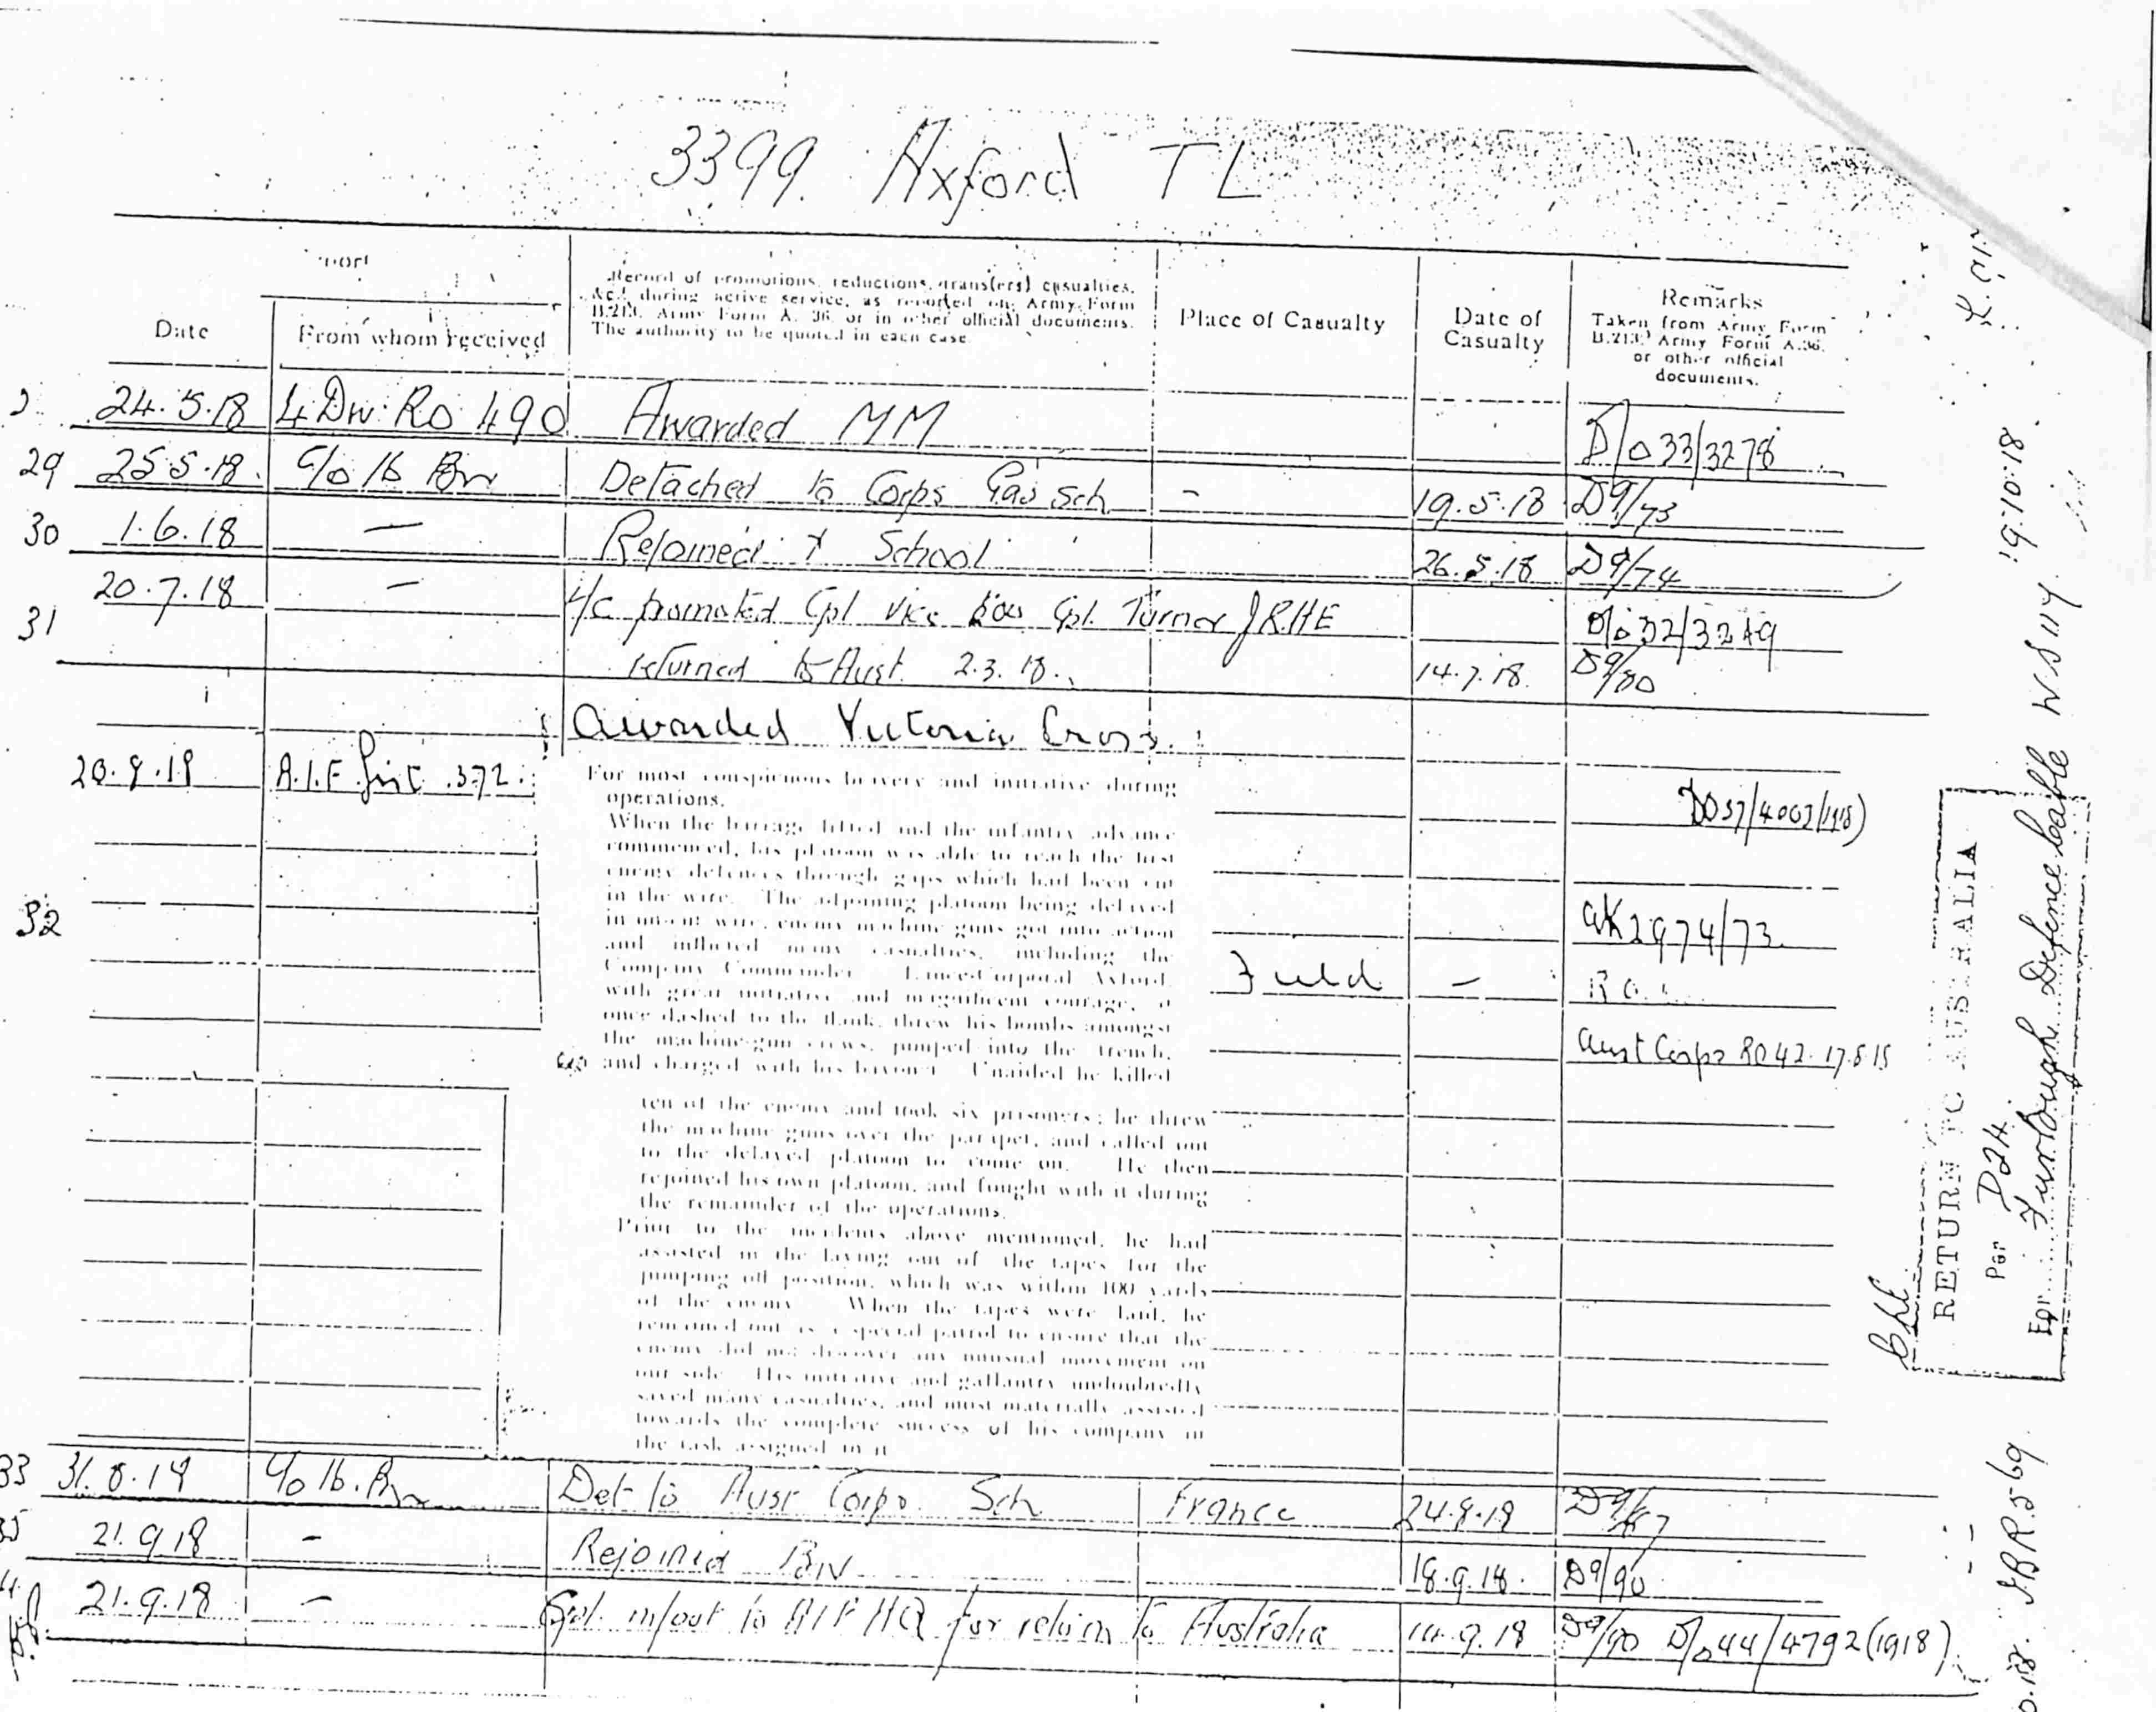 3399. Axford TL
Report
Date
From whom received
Record of promotions, reductions, transfers, casualties,
&c., during active service, as reported on Army Form
B.213, Army Form A. 36, or in other official documents.
The authority to be quoted in each case.
Place of Casualty
Date of
Casualty
Remarks
Taken from Army Form
B.213, Army Form A.36,
or other official
documents.
24.5.18 4 Div. Ro 490 Awarded MM D/o 33/3278
29 25.5.18. c/o 16 Bn Detached to Corps Gas Sch - 19.5.18 D9/73
30 1.6.18 — Rejoined f School 26.5.18 D9/74
20.7.18 — L/c promoted Cpl vice Cpl. Turner J.R.H.E D/o 32/3249
31
returned to Aust. 2.3.18. 14.7.18. D9/80
Awarded Victoria Cross.
A.I.F. List 372.
For most conspicuous bravery and initiative during
operations.
When the barrage lifted and the infantry advance
commenced, his platoon was able to reach the first
enemy defences through gaps which had been cut
in the wire. The adjoining platoon being delayed
in uncut wire, enemy machine guns got into action
and inflicted many casualties, including the
Company Commander. Lance-Corporal Axford,
with great initiative and magnificent courage, at
once dashed to the flank, threw his bombs amongst
the machine-gun crews, jumped into the trench,
and charged with his bayonet. Unaided he killed
ten of the enemy and took six prisoners; he threw
the machine guns over the parapet, and called out
to the delayed platoon to come on. He then
rejoined his own platoon, and fought with it during
the remainder of the operations.
Prior to the incidents above mentioned, he had
assisted in the laying out of the tapes for the
jumping off position, which was within 100 yards
of the enemy. When the tapes were laid, he
remained out as a special patrol to ensure that the
enemy did not discover any unusual movement on
our side. His initiative and gallantry undoubtedly
saved many casualties, and most materially assisted
towards the complete success of his company in
the task assigned to it
DO37/4003/(1918)
32
AK2974/73
Field —
Aust Corps RO 42. 17.8.18
33 31.8.18 c/o 16.Bn Det to Aust Corps Sch France 24.8.18 D9/87
35 21.9.18 - Rejoined BN 18.9.18. D9/90
21.9.18 — Cpl. m/out to AIF HQ for return to Australia 14.9.18 D9/90 D/o 44/4792 (1918)
RETURN TO AUSTRALIA
Per D24.
For Furlough Defence Cable WS 117.
19.10.18.